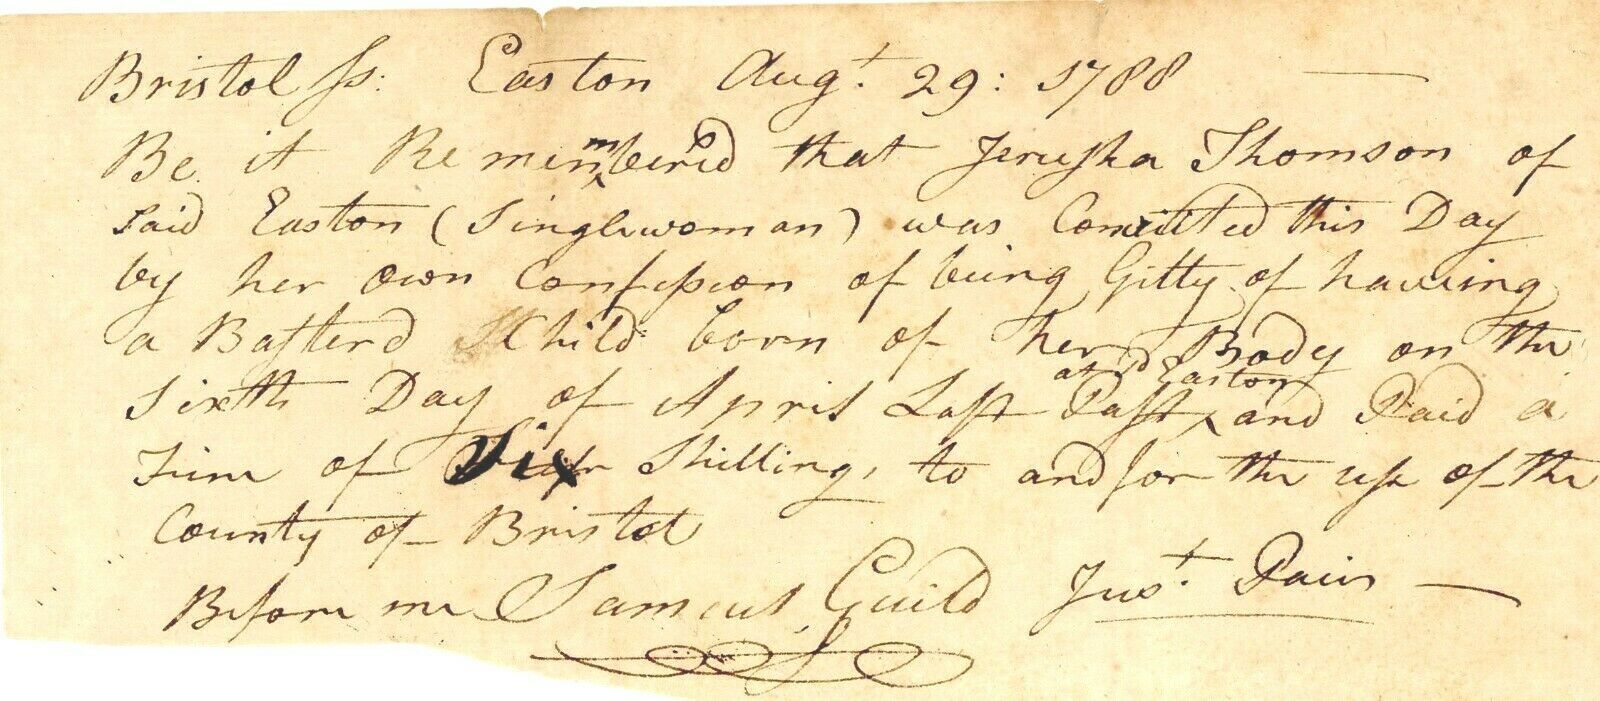 Bristol ss: Easton Augt. 29: 1788
Be it Rememberd that Jerusha Thomson of
said Easton (Singlewoman) was Comitted this Day
by her own Confession of being Gitty of haveing
a Basterd Child born of her Body on the
Sixth Day of April Last Past at sd Easton and Paid a
Fine of Six Shilling, to and for the use of the
County of Bristol
Before me Samuel Guild Just. Pacis